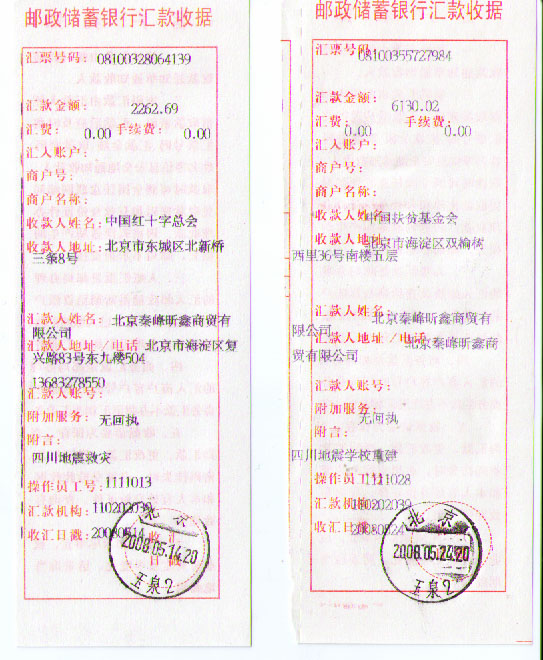 邮政储蓄银行汇款收据
汇票号码: 08100328064139
汇款金额: 2262.69
汇费: 0.00 手续费: 0.00
汇入账户:
商户号:
商户名称:
收款人姓名: 中国红十字总会
收款人地址: 北京市东城区北新桥
三条8号
汇款人姓名: 北京秦峰昕鑫商贸有
限公司
汇款人地址/电话 北京市海淀区复
兴路83号东九楼504
13683278550
汇款人账号:
附加服务: 无回执
附言:
四川地震救灾
操作员工号: 1111013
汇款机构: 110202039
收汇日戳: 20080514
北京
2008.05.14.20
玉泉2
邮政储蓄银行汇款收据
汇票号码: 08100355727984
汇款金额: 6130.02
汇费: 0.00 手续费: 0.00
汇入账户:
商户号:
商户名称:
收款人姓名: 中国扶贫基金会
收款人地址: 北京市海淀区双榆树
西里36号南楼五层
汇款人姓名: 北京秦峰昕鑫商贸有
限公司
汇款人地址/电话 北京秦峰昕鑫商
贸有限公司
汇款人账号:
附加服务: 无回执
附言:
四川地震学校重建
操作员工号: 1111028
汇款机构: 110202039
收汇日戳: 20080524
北京
2008.05.24.20
玉泉2